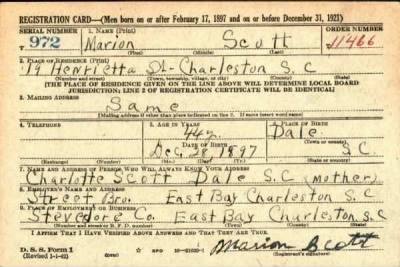 REGISTRATION CARD—(Men born on or after February 17, 1897 and on or before December 31, 1921)
SERIAL NUMBER 1. NAME (Print) ORDER NUMBER
T 972 Marion Scott 11466
(First) (Middle) (Last)
2. PLACE OF RESIDENCE (Print)
19 Henrietta St - Charleston S.C
(Number and street) (Town, township, village, or city) (County) (State)
[THE PLACE OF RESIDENCE GIVEN ON THE LINE ABOVE WILL DETERMINE LOCAL BOARD
JURISDICTION; LINE 2 OF REGISTRATION CERTIFICATE WILL BE IDENTICAL]
3. MAILING ADDRESS
Same
[Mailing address if other than place indicated on line 2. If same insert word same]
4. TELEPHONE 5. AGE IN YEARS 6. PLACE OF BIRTH
44 Dale
DATE OF BIRTH (Town or county)
Dec 1897 S.C
(Exchange) (Number) (Mo.) (Day) (Yr.) (State or country)
7. NAME AND ADDRESS OF PERSON WHO WILL ALWAYS KNOW YOUR ADDRESS
Charlotte Scott Dale S.C (mother)
8. EMPLOYER'S NAME AND ADDRESS
Street Bro. East Bay Charleston S.C
9. PLACE OF EMPLOYMENT OR BUSINESS
Stevedore Co. East Bay Charleston S.C
(Number and street or R. F. D. number) (Town) (County) (State)
I AFFIRM THAT I HAVE VERIFIED ABOVE ANSWERS AND THAT THEY ARE TRUE.
D. S. S. Form 1 Marion Scott
(Revised 1-1-42) (Registrant's signature)